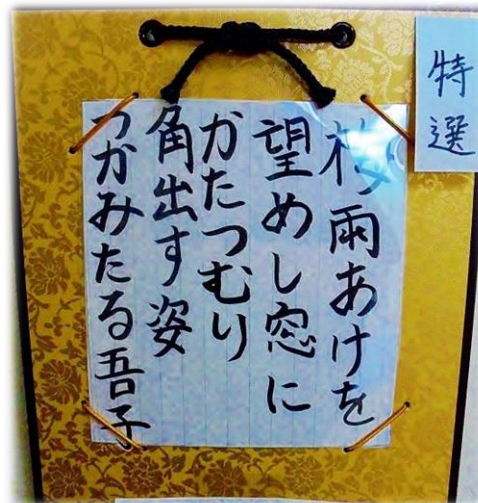 特選
梅雨あけを
望めし窓に
かたつむり
角出す姿
つかみたる吾子